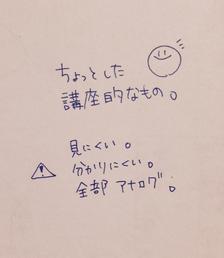 ちょっとした
講座的なもの。
見にくい。
分かりにくい。
全部 アナログ。